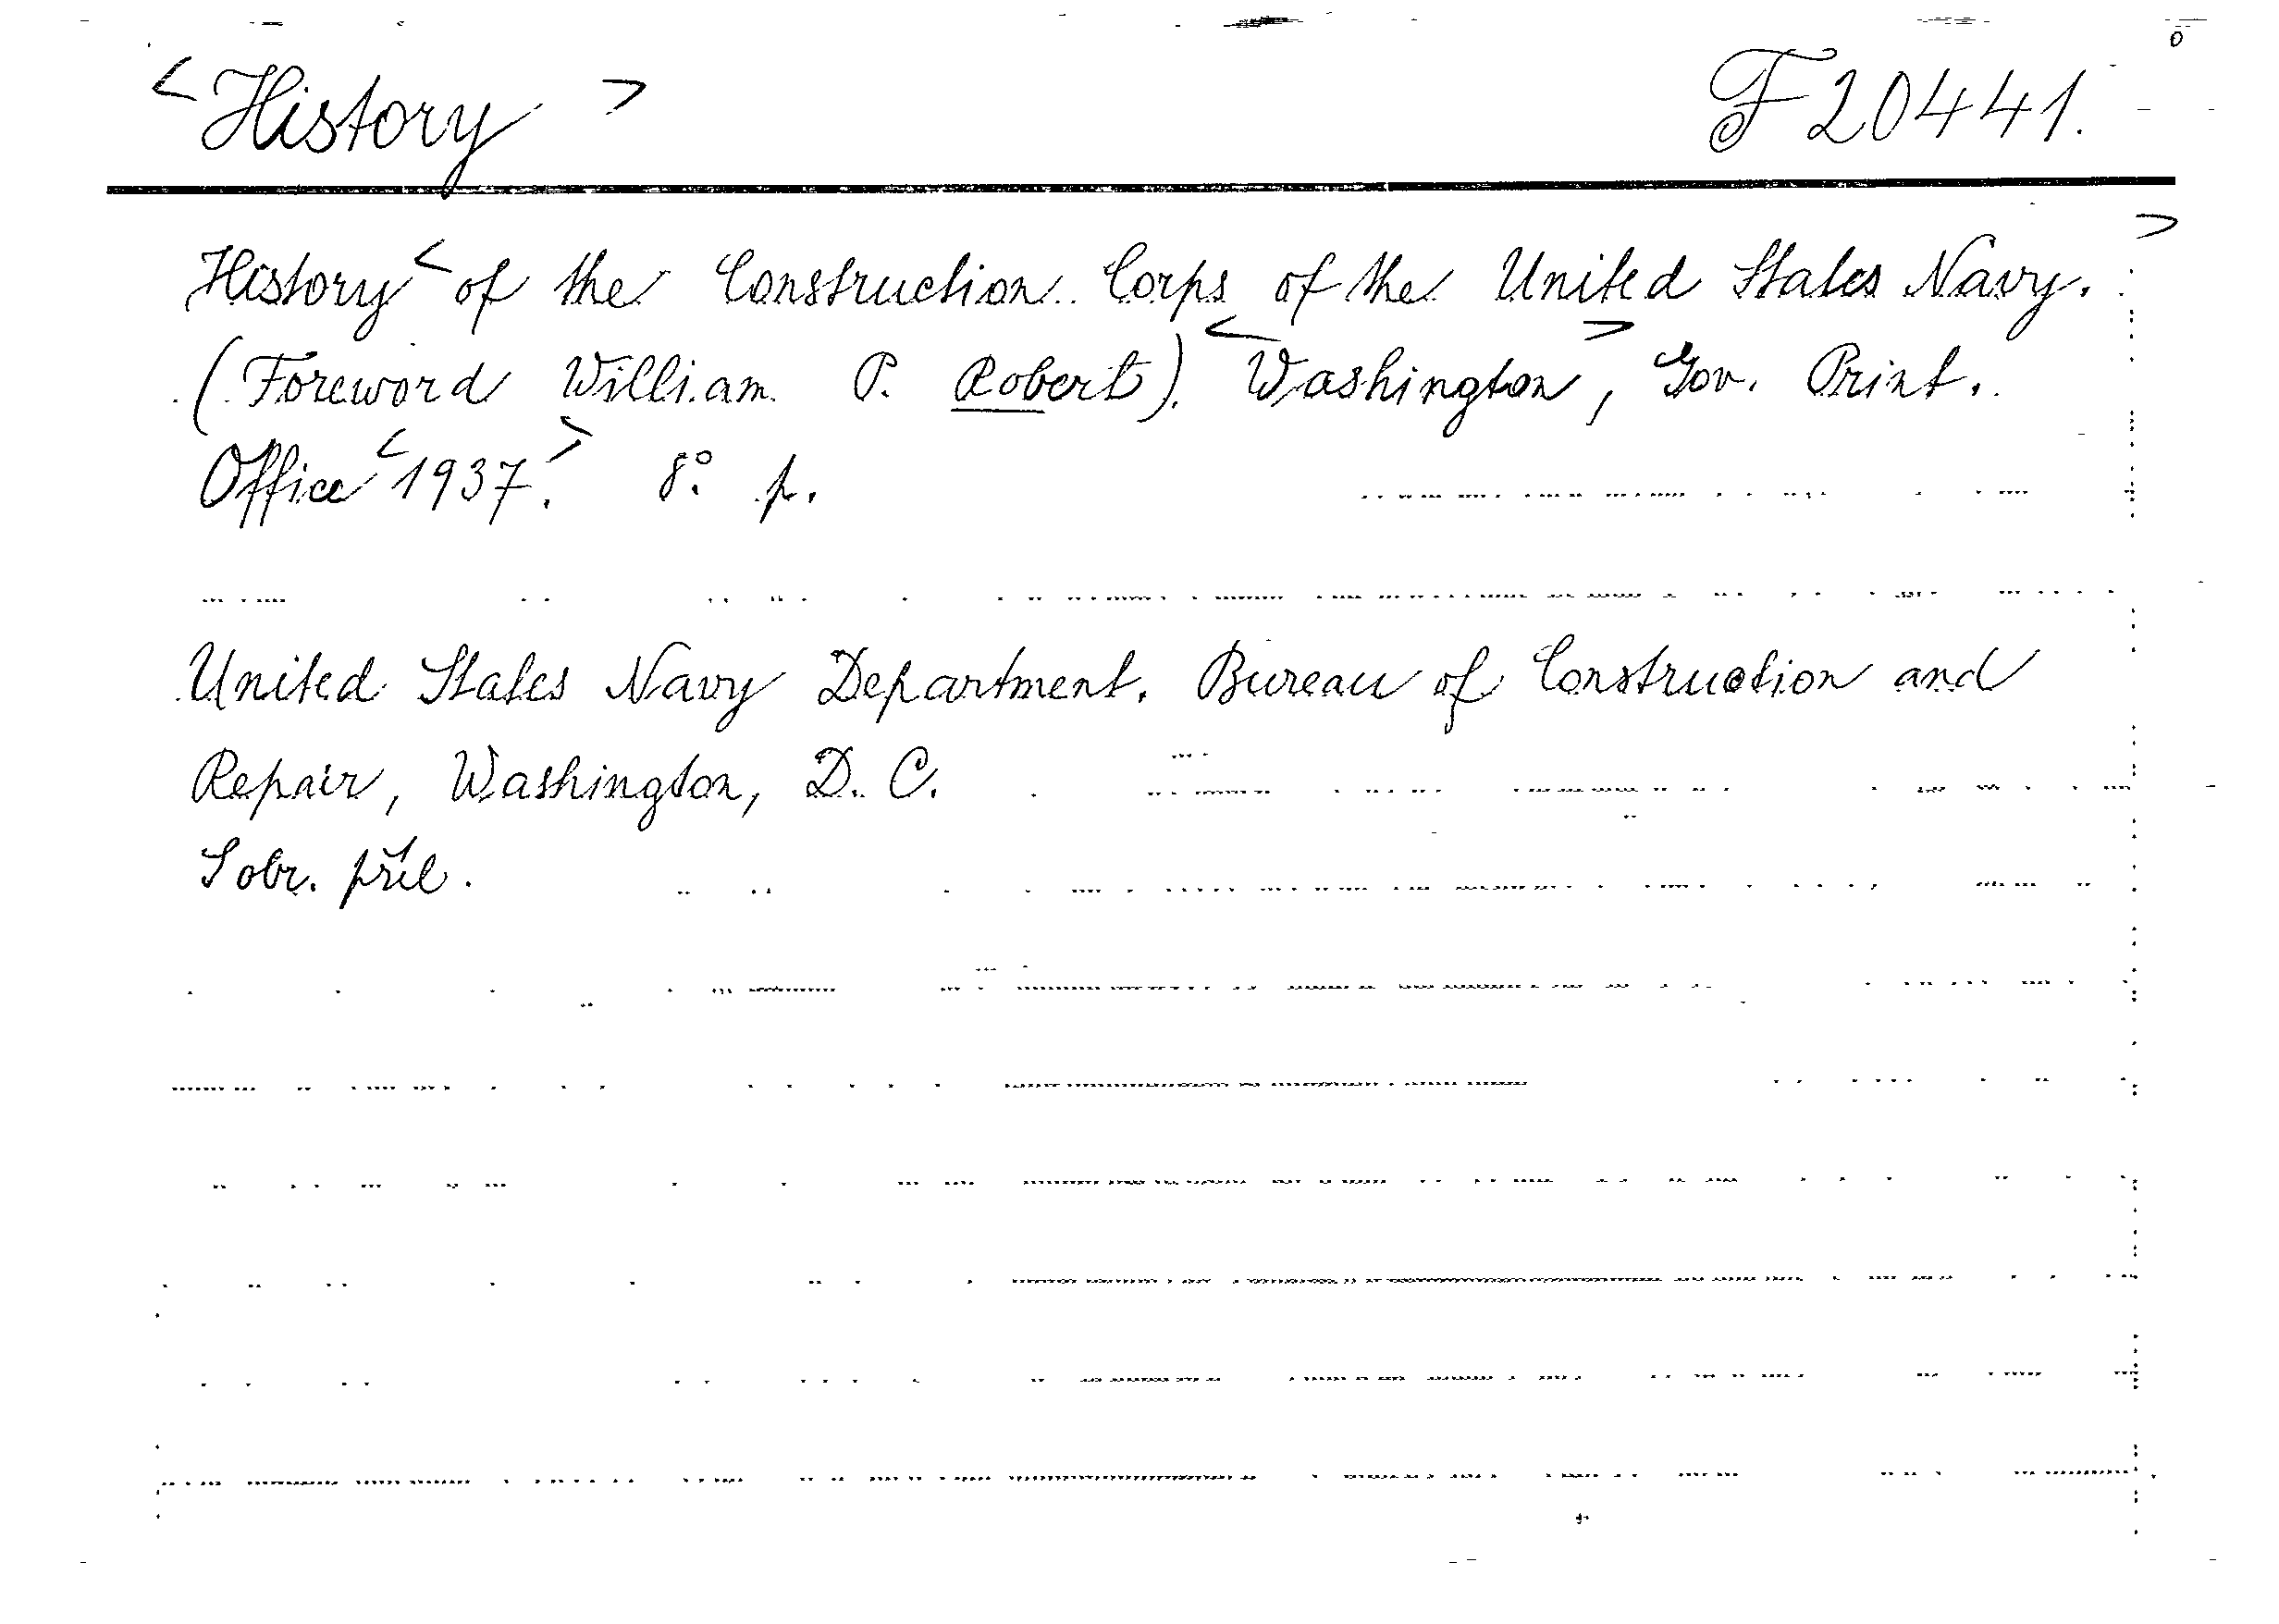 < History > F 20441.
History < of the Construction Corps of the United States Navy. >
(Foreword William P. Robert). < Washington >, Gov. Print.
Office < 1937. > 8° p.
United States Navy Department. Bureau of Construction and
Repair, Washington, D. C.
S obr. příl.